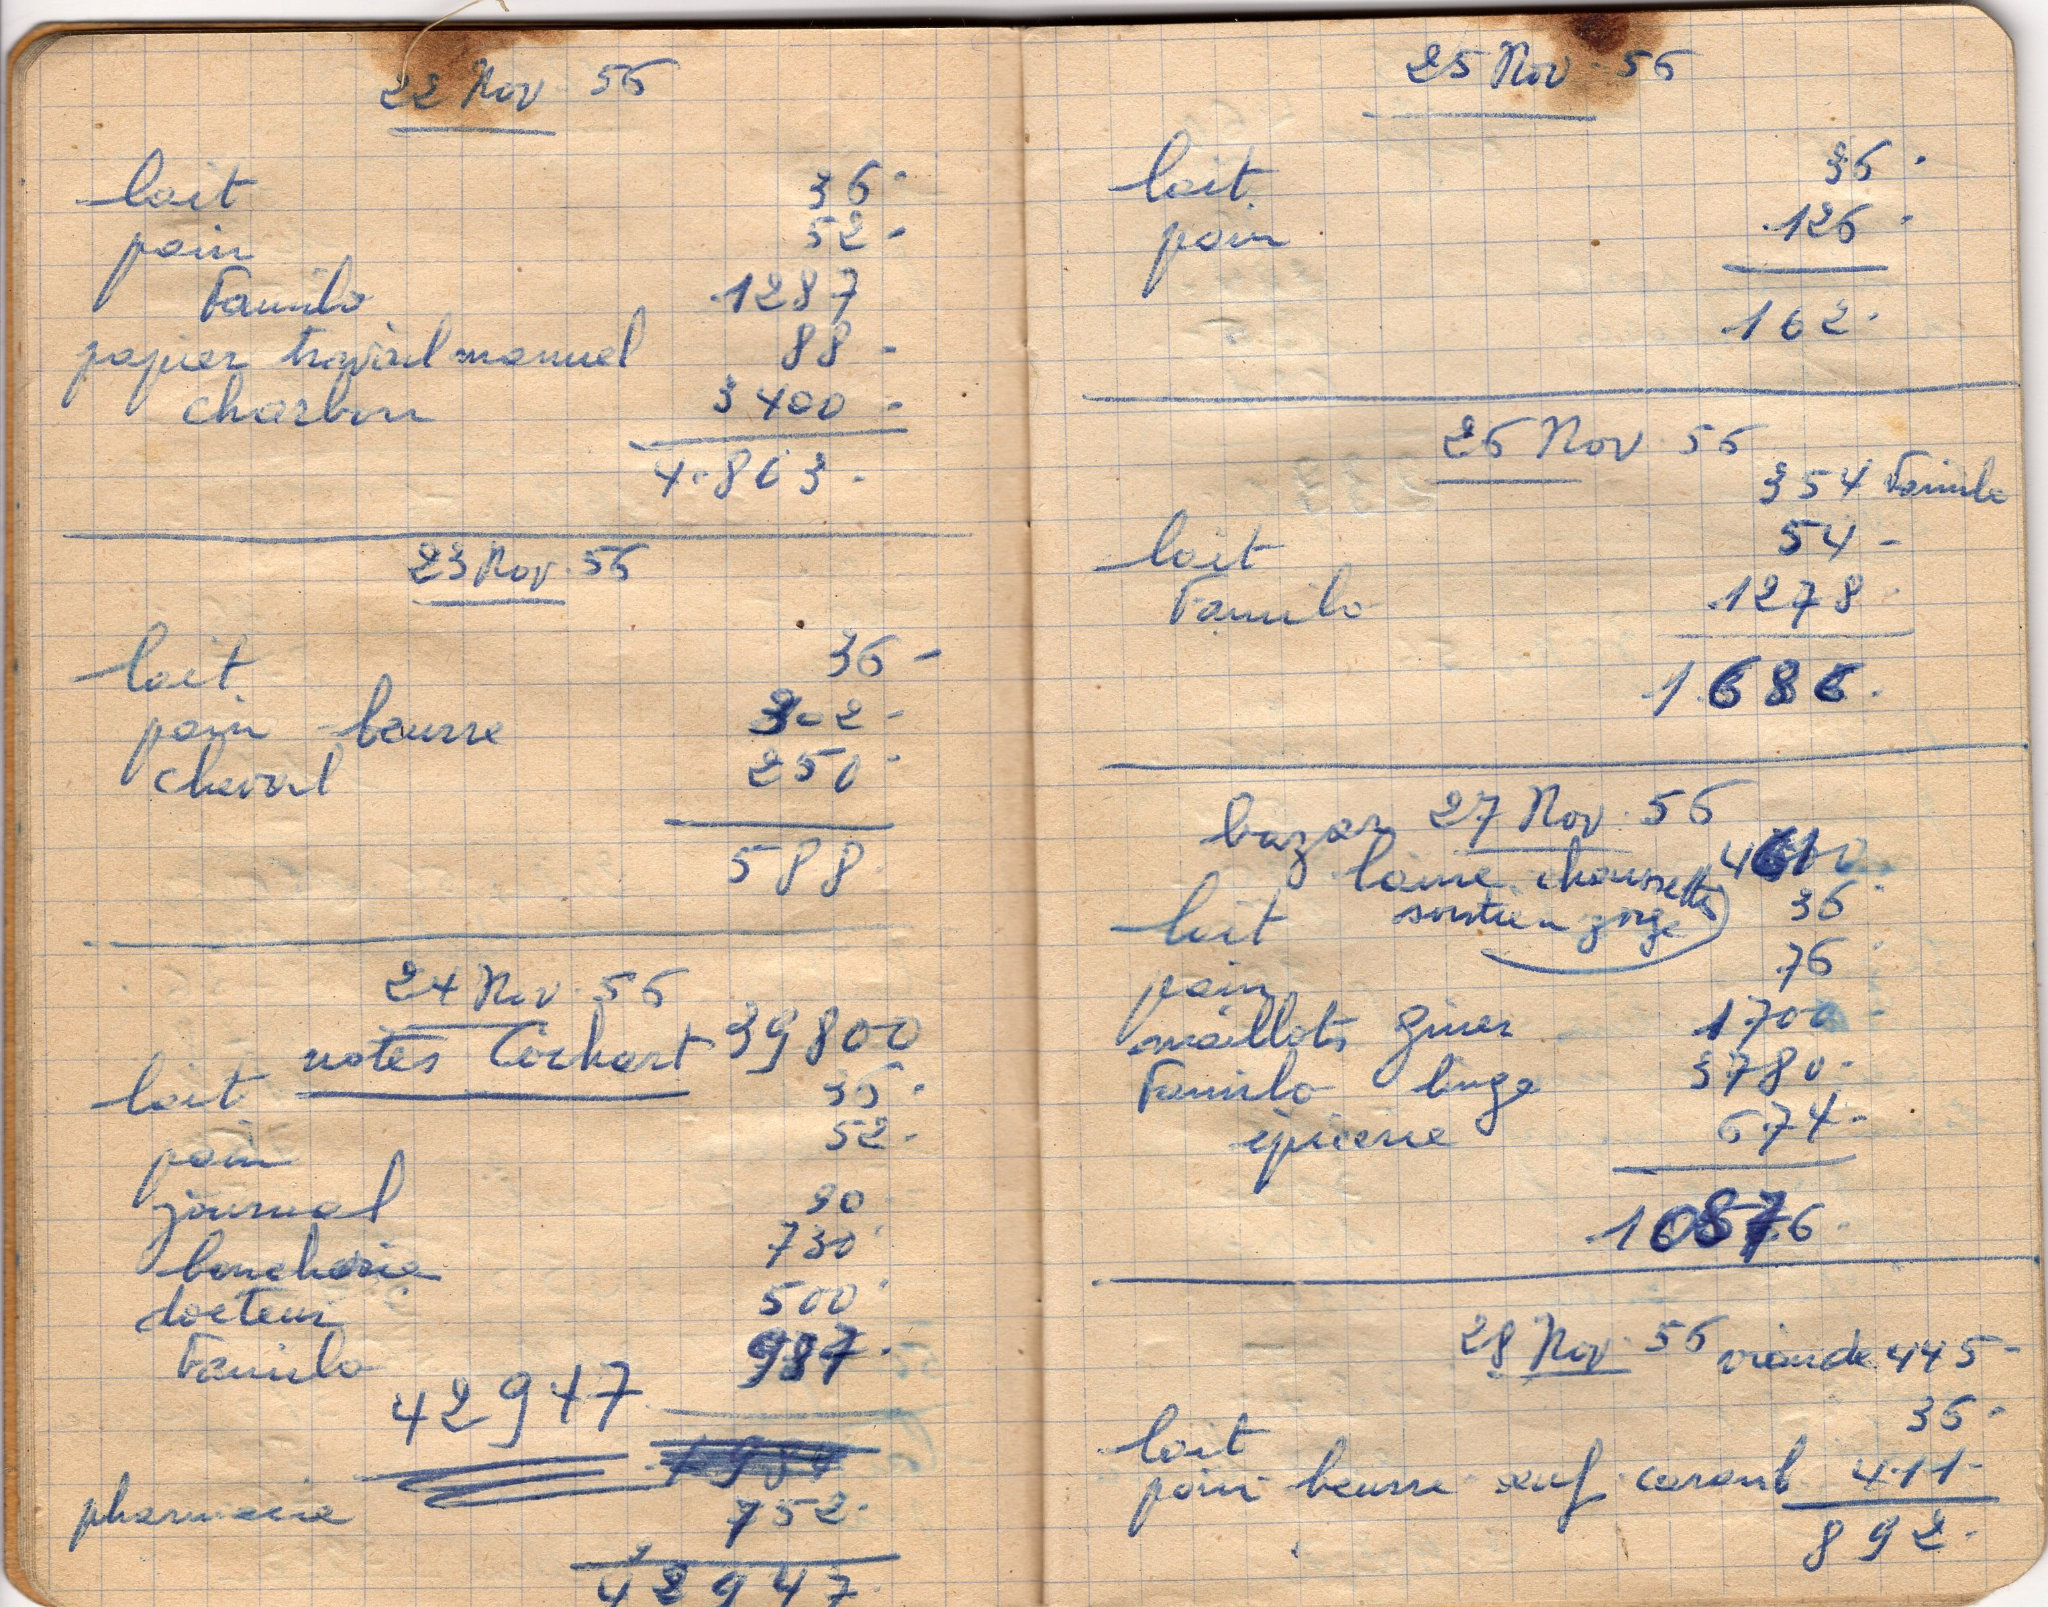 22 Nov. 56
lait 36.
pain 52-
Familo 1287
papier travail manuel 88-
charbon 3400-
4.863.
23 Nov. 56
lait 36-
pain - beurre 302-
cheval 250.
588
24 Nov. 56
notes Cochart 39800
lait 36.
pain 52.
journal 90.
boucherie 730.
docteur 500.
Familo 987.
42947
pharmacie 752.
42947.
25 Nov. 56
lait 36.
pain 126.
162.
26 Nov. 56
354 Familo
lait 54-
Familo 1278.
1686.
27 Nov. 56
bazar
laine chaussettes 4610
soutien gorge
lait 36.
pain 76.
maillots 1700-
Familo linge 3780.
épicerie 674.
10876.
28 Nov. 56 viande 445-
lait 36.
pain beurre oeuf caramb 411-
892.